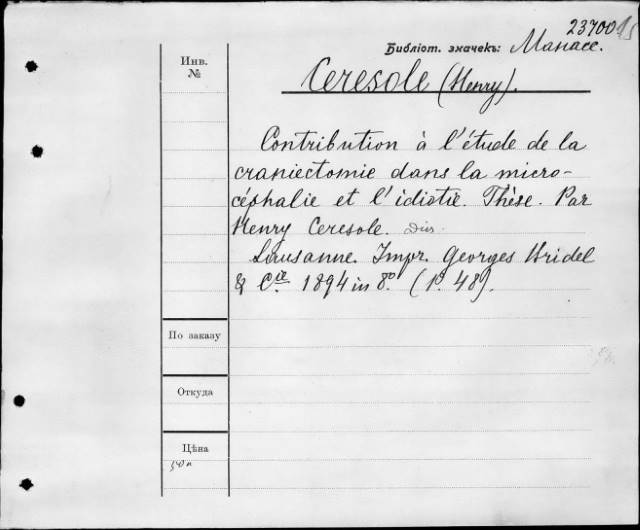 23700
Библіот. значекъ: Манасе.
Инв.
№
Ceresole (Henry).
Contribution à l'étude de la
craniectomie dans la micro-
céphalie et l'idiotie. Thèse. Par
Henry Ceresole. Dis.
Lausanne. Impr. Georges Bridel
& Cie. 1894 in 8º. (P. 48).
По заказу
Откуда
Цѣна